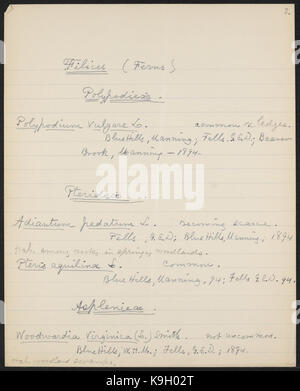 2.
Filices (Ferns)
Polypodieæ.
Polypodium vulgare L. common on ledges.
Blue Hills, Manning; Fells. G.E.D; Beaver
Brook, Manning - 1894.
Pterideæ.
Adiantum pedatum L. becoming scarce.
Fells, G.E.D; Blue Hills, Manning, 1894
hab. among rocks in springy woodlands.
Pteris aquilina L. common.
Blue Hills, Manning, 94; Fells G.E.D. 94.
Asplenieæ
Woodwardia Virginica (L.) Smith. not uncommon.
Blue Hills, W.H.M.; Fells, G.E.D; 1894.
hab. woodland swamps.
alamy
Image ID: K9H02T
www.alamy.com